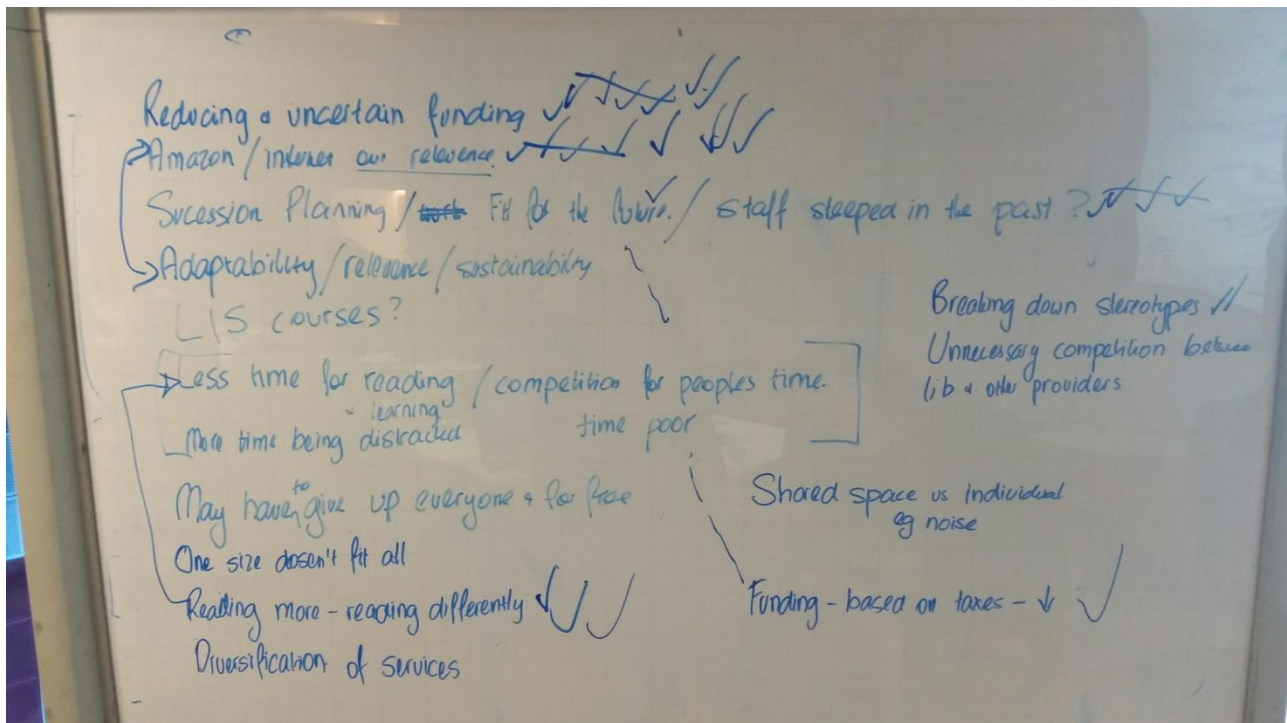 Reducing & uncertain funding
Amazon / internet our relevence.
Sucession Planning / Fit for the future. / staff steeped in the past ?
Adaptability / relevance / sustainability
LIS courses?
Less time for reading / competition for peoples time.
& learning
More time being distracted time poor
May have to give up everyone & for free
One size dosen't fit all
Reading more - reading differently
Diversification of services
Breaking down stereotypes
Unnecessary competition between
lib & other providers
Shared space vs individual
eg noise
Funding - based on taxes - ↓